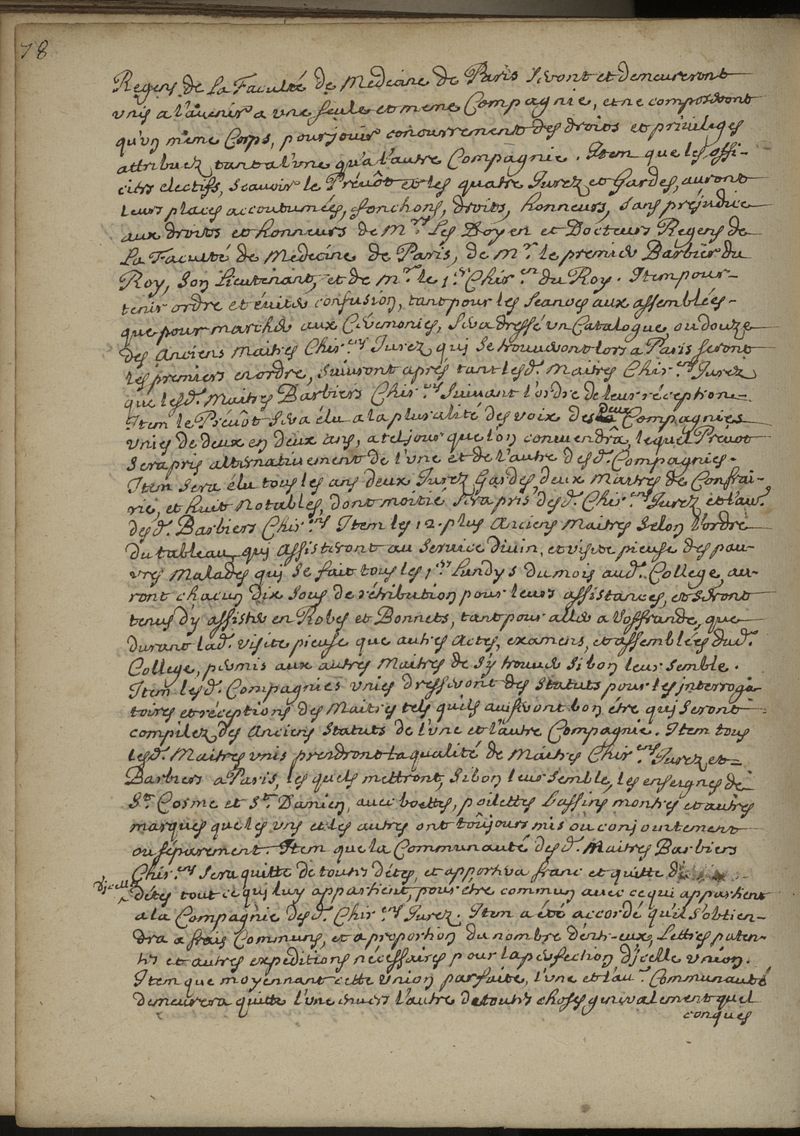 78
Regens de La Faculté de Medecine de Paris Seront et demeureront
unis a l'auenir a une seule et meme Compagnie, et ne composeront
qu'un même Corps, pour jouir concurremment des droits et priuileges
attribuez tant a l'une qu'a l'autre Compagnie. Item que les offi-
ciers electifs, Scauoir le Préuôt et les quatre Jurez et Gardes, auront
leurs places accoutumées, fonctions, droits, honneurs, Sans prejudice
aux droits et honneurs de Mrs. Les Doyen et Docteurs Regens de
La Faculté de Medecine de Paris, de Mr. le premier Barbier du
Roy, Son Lieutenant, et de Mr. le 1er. Chir.en du Roy. Item pour
tenir ordre et éuiter confusion, tant pour les seances aux assemblées
que pour marcher aux Cérémonies, Sera dressé un Catalogue, ou douze
des Anciens Maitres Chir.ens Jurez qui Se trouueront lors a Paris seront
les premiers en ordre, Suiuront après tant lesd. Maitres Chir.ens Jurez
que lesd. Maitres Barbiers Chir.ens Suiuant l'ordre de leur réception.
Item le Préuôt Sera élu a la pluralité des voix des deux Compagnies
unies de deux en deux ans, a tel jour que l'on conuiendra, lequel Preuot
Sera pris alternatiuement de l'une et de l'autre desd. Compagnies.
Item Sera élu tous les ans deux Jurez Gardes, deux Maitres de Confrai-
rie, et huit Notables, dont moitie Sera pris desd. Chir.ens Jurez et l'autre
desd. Barbiers Chir.ens Item les 12. plus Anciens Maitres Selon l'ordre
du tableau qui Assisteront au Seruice diuin, et visite pieuse des pau-
vres Malades qui Se fait tous les 1ers Lundys du mois aud. College, au-
ront chacun dix Sous de rétribution pour leurs assistances, et Seront
tenus d'y assister en Robes et Bonnets, tant pour aller a l'offrande, que
durant lad. visite pieuse que autres Actes, examens, et assemblées dud.
College, permis aux autres Maitres de S'y trouuer Si bon leur semble.
Item lesd. Compagnies unies dresseront des Statuts pour les jnterroga-
toires et réceptions des Maitres tels quils auiseront bon être qui Seront
compilez des Anciens Statuts de l'une et l'autre Compagnie. Item tous
lesd. Maitres unis prendront la qualité de Maitres Chir.ens Jurez et
Barbiers a Paris, les quels mettront, Si bon leur Semble, les enseignes de
St. Cosme et St. Damien, auec boettes, poilettes bassins montres et autres
marques que les uns et les autres ont toûjours mis ou conjointement
ou séparement. Item que la Communauté desd. Maitres Barbiers
Chir.ens Sera quitte de toutes détes, et apportera franc et quitte
djcelles
détes tout ce qui luy appartient, pour être commun auec ce qui appartient
a la Compagnie desd. Chir.ens Jurez. Item a été accordé quil S'obtien-
dra a frais Communs, et a proportion du nombre d'entr-eux, Lettres paten-
tes et autres expeditions nécessaires pour la perfection djcelle vnion.
Item que moyennant cette vnion parfaite, l'une et l'au.e Communauté
demeurera quitte l'une enuers l'autre de toutes choses generalement quel
conques